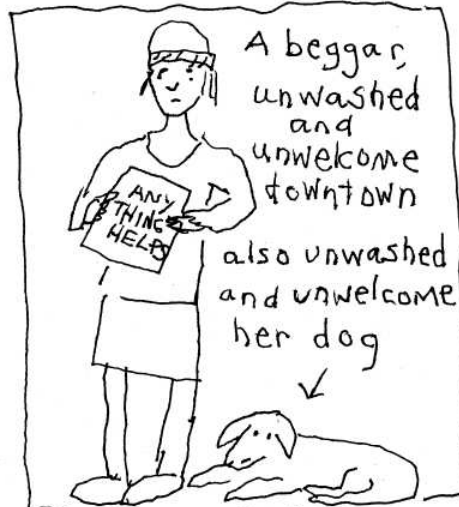 A beggar,
unwashed
and
unwelcome
downtown
ANY
THING
HELPS
also unwashed
and unwelcome
her dog